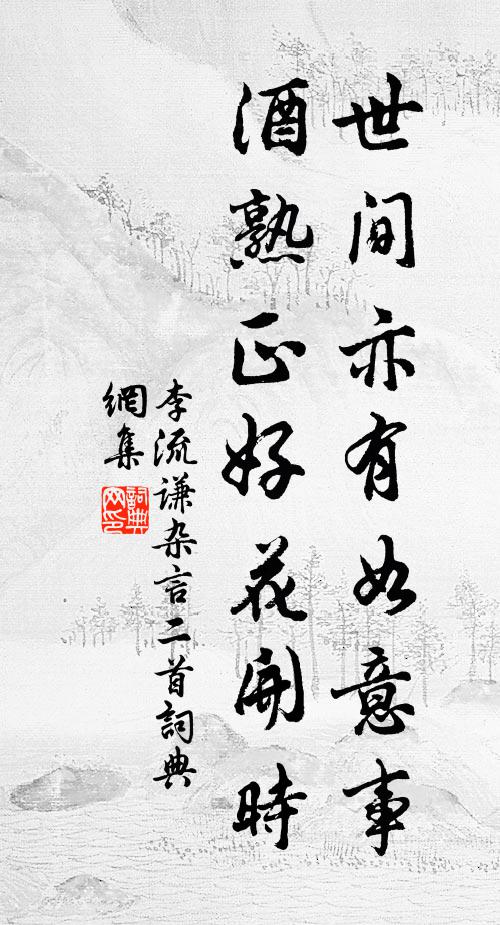 世间亦有如意事
酒熟正好花开時
李流谦杂言二首詞典
網集
詞典
网印